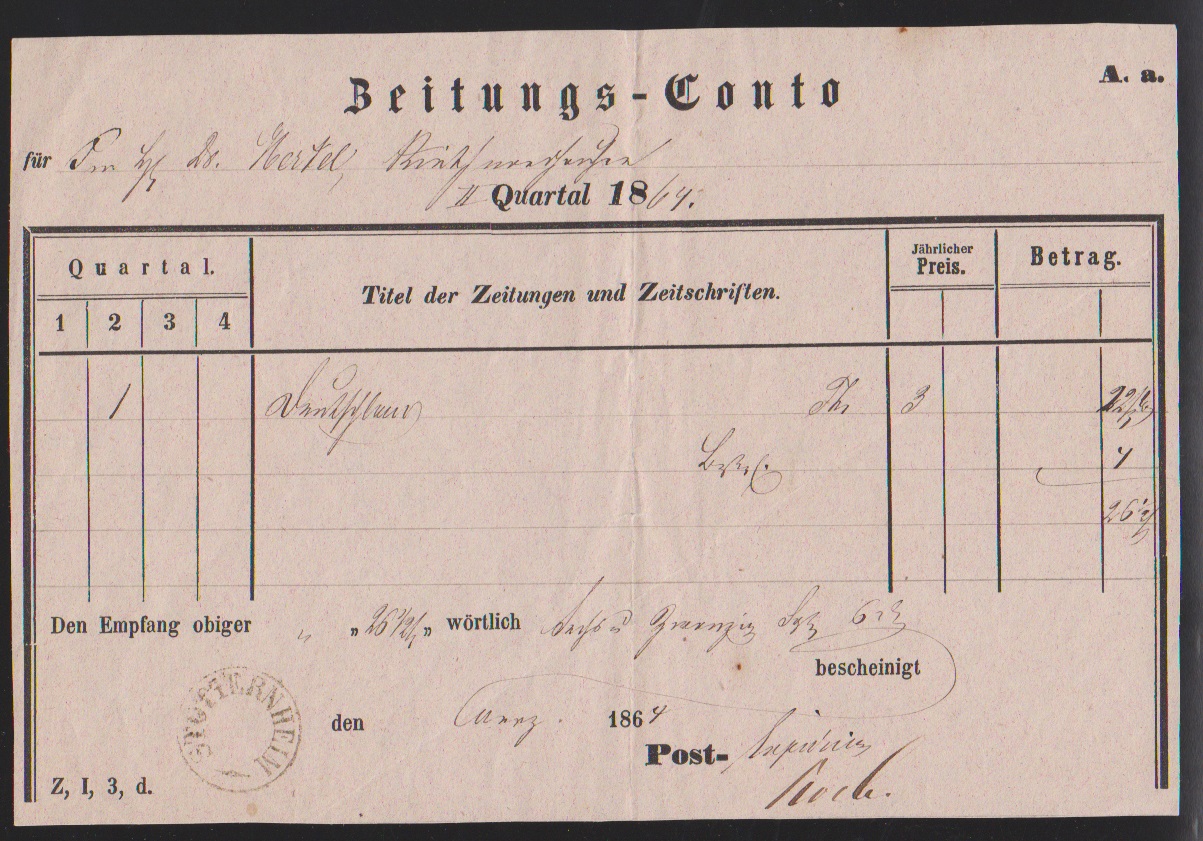 Zeitungs-Conto
A. a.
für Dr. Merkel,
II Quartal 1864.
Quartal.
Titel der Zeitungen und Zeitschriften.
Jährlicher Preis.
Betrag.
1 2 3 4
1 Deutschland 3 22½
4
26½
Den Empfang obiger „ „ 26½ „ wörtlich Sechs u Zwanzig Sgr 6
bescheinigt
STOTTERNHEIM
den Maerz. 1864
Post-Expedition
Koch.
Z, I, 3, d.